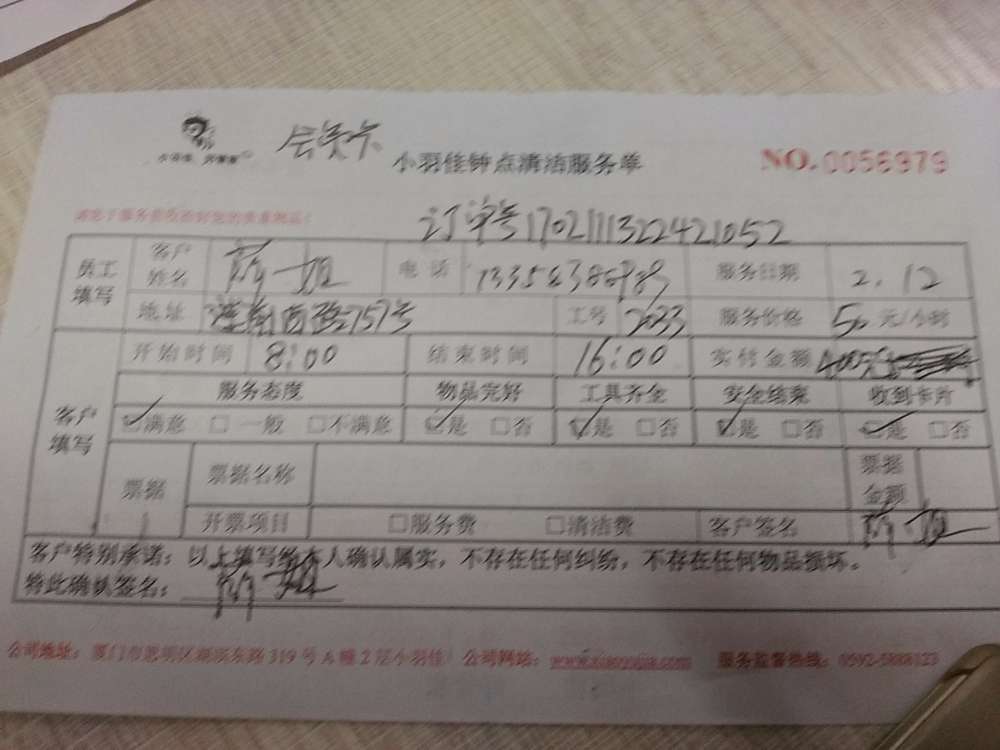 会员卡
小羽佳钟点清洁服务单 NO.0056979
订单号1702111322421052
员工填写 客户姓名 电话 服务日期 2.12
地址 757号 工号 2033 服务价格 50 元/小时
客户填写 开始时间 8:00 结束时间 16:00 实付金额
服务态度 物品完好 工具齐全 安全结束 收到卡片
☑满意 □一般 □不满意 ☑是 □否 ☑是 □否 ☑是 □否 ☑是 □否
票据 票据名称 票据金额
开票项目 □服务费 □清洁费 客户签名
客户特别承诺：以上填写经本人确认属实，不存在任何纠纷，不存在任何物品损坏。
特此确认签名：
公司地址：厦门市思明区湖滨东路319号A幢2层小羽佳 公司网站：www.xiaoyujia.com 服务监督热线：0592-5888123